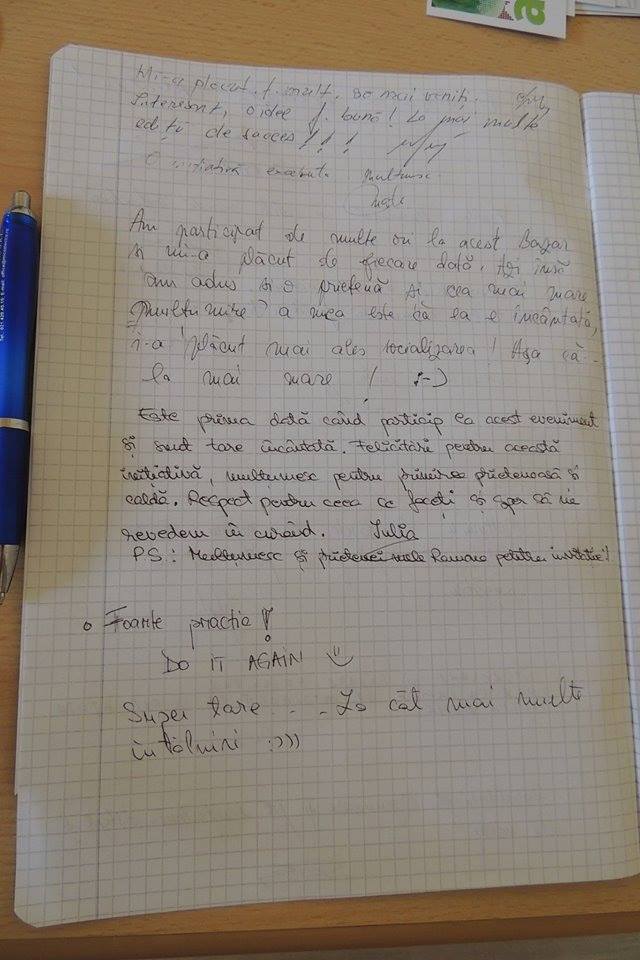 Mi-a plăcut f. mult. Să mai veniți.
Interesant, o idee f. bună! La mai multe
ediții de succes!!!
O inițiativă
Am participat de multe ori la acest Bazar
și mi-a plăcut de fiecare dată. Azi însă
am adus și o prietenă și cea mai mare
mulțumire a mea este că ea e încântată,
i-a plăcut mai ales socializarea! Așa că
la mai mare ! :-)
Este prima dată când particip la acest eveniment
și sunt tare încântată. Felicitări pentru această
inițiativă, mulțumesc pentru primirea prietenoasă și
caldă. Respect pentru ceea ce faceți și sper să ne
revedem în curând. Iulia
P.S.: Mulțumesc și prietenei mele Ramona pentru invitație!
Foarte practic!
DO IT AGAIN
Super tare . . . La cât mai multe
întâlniri :)))